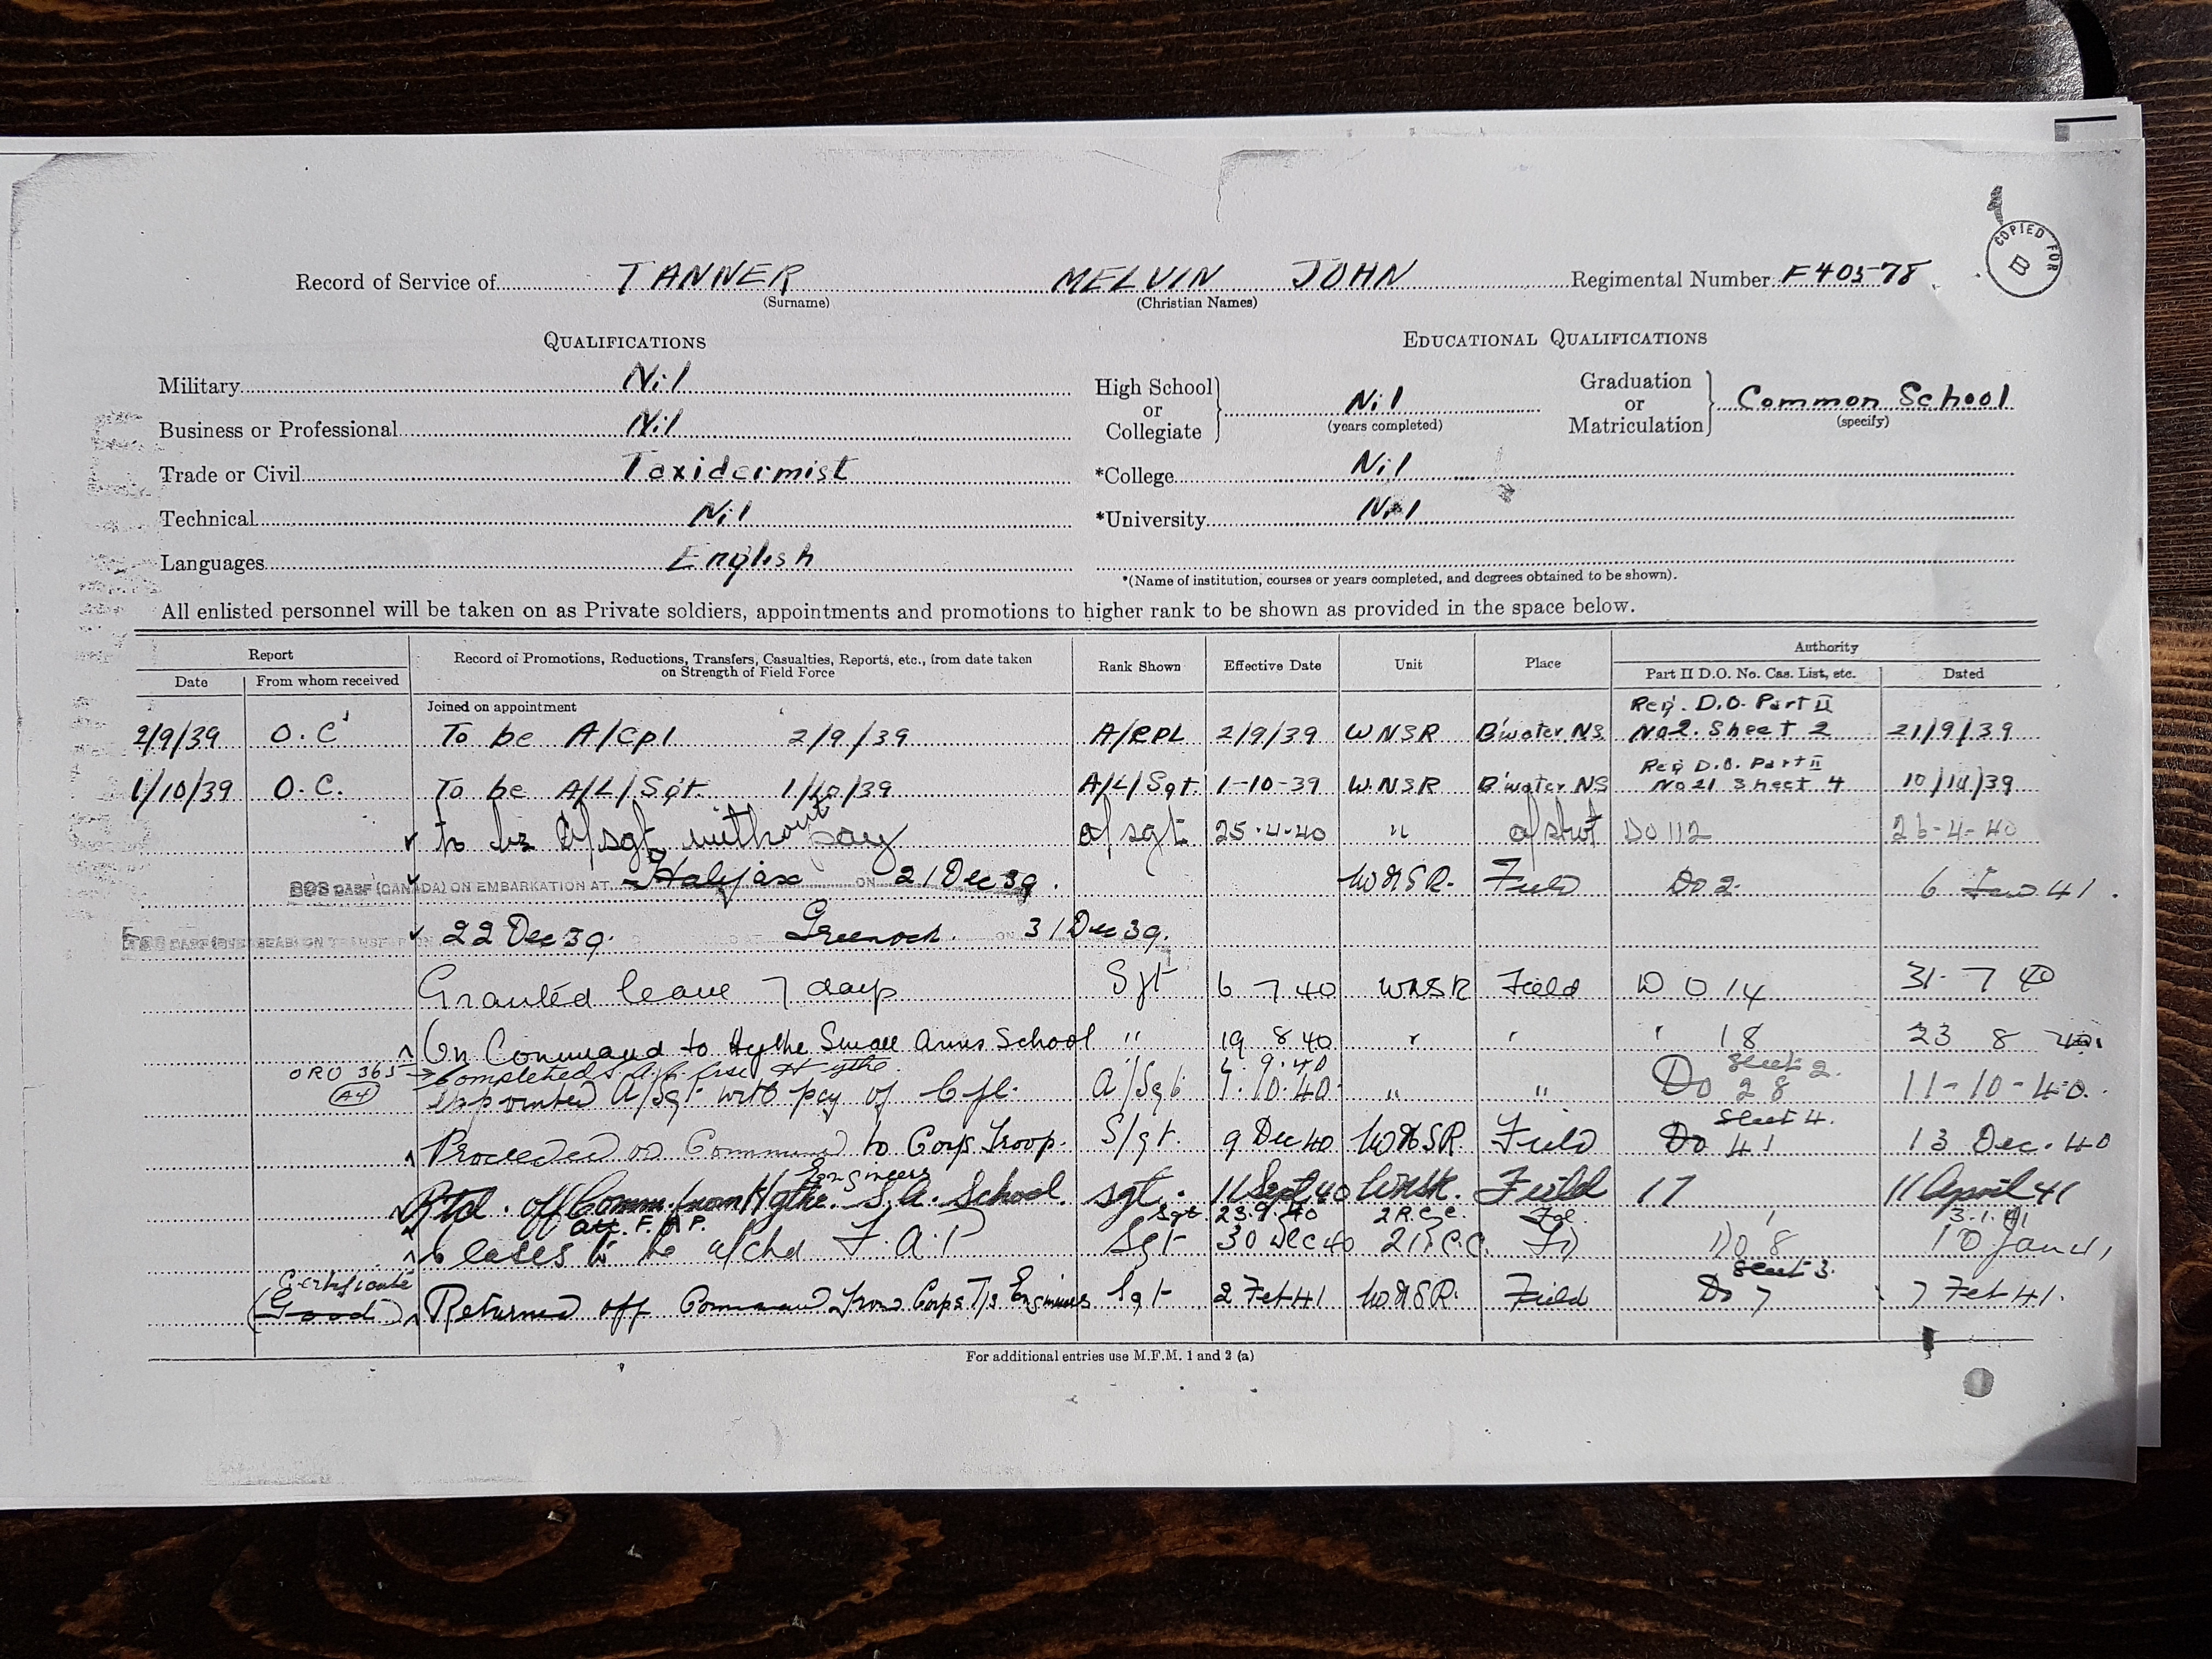 COPIED FOR
Record of Service of TANNER MELVIN JOHN Regimental Number F 40578
(Surname) (Christian Names)
QUALIFICATIONS
Military Nil
Business or Professional Nil
Trade or Civil Taxidermist
Technical Nil
Languages English
EDUCATIONAL QUALIFICATIONS
High School or Collegiate } Nil Graduation or Matriculation } Common School
(years completed) (specify)
*College Nil
*University Nil
*(Name of institution, courses or years completed, and degrees obtained to be shown).
All enlisted personnel will be taken on as Private soldiers, appointments and promotions to higher rank to be shown as provided in the space below.
Report
Date From whom received
Record of Promotions, Reductions, Transfers, Casualties, Reports, etc., from date taken
on Strength of Field Force
Rank Shown Effective Date Unit Place
Authority
Part II D.O. No. Cas. List, etc. Dated
Joined on appointment
Reg. D.O. Part II
2/9/39 O.C To be A/Cpl 2/9/39 A/CPL 2/9/39 WNSR B'water NS No2. Sheet 2 21/9/39
Reg D.O. Part II
1/10/39 O.C. To be A/L/Sgt. 1/10/39 A/L/Sgt. 1-10-39 W.NSR B'water NS No21 Sheet 4 10/10/39
to be a/sgt without pay a/sgt 25-4-40 " a/shot DO 112 26-4-40
SOS CASF (CANADA) ON EMBARKATION AT Halifax ON 21 Dec 39. WNSR. Field Do 2. 6 Jan 41.
TOS CASF (OVERSEAS) ON TRANSFER 22 Dec 39. AT Greenock. ON 31 Dec 39.
Granted leave 7 days Sgt 6 7 40 WNSR Field D O 14 31-7 40
On Command to Hythe Small Arms School " 19 8 40 " " " 18 23 8 40
ORO 365 → Completed Hythe. 9. 40 Sheet 2.
A4 appointed A/Sgt with pay of Cpl. A/Sgt 10.40 " " Do 28 11-10-40.
Sheet 4.
Proceeded on Command to Corps Troop. S/gt. 9 Dec 40 WNSR. Field Do 41 13 Dec. 40
Engineers
Rtd. off Comm. from Hythe. S.A. School. sgt. 11 Sept 40 WNSR. Field 17 11 April 41
att. F.A.P. Sgt 23.9.40 3.1.41
Ceases to be a/chd F.A.P Sgt 30 Dec 40 Do 8 10 Jan 41
Certificate Sheet 3.
(Good) Returned off Command from Corps T/s Engineers Sgt 2 Feb 41 WNSR. Field Do 7 7 Feb 41.
For additional entries use M.F.M. 1 and 2 (a)